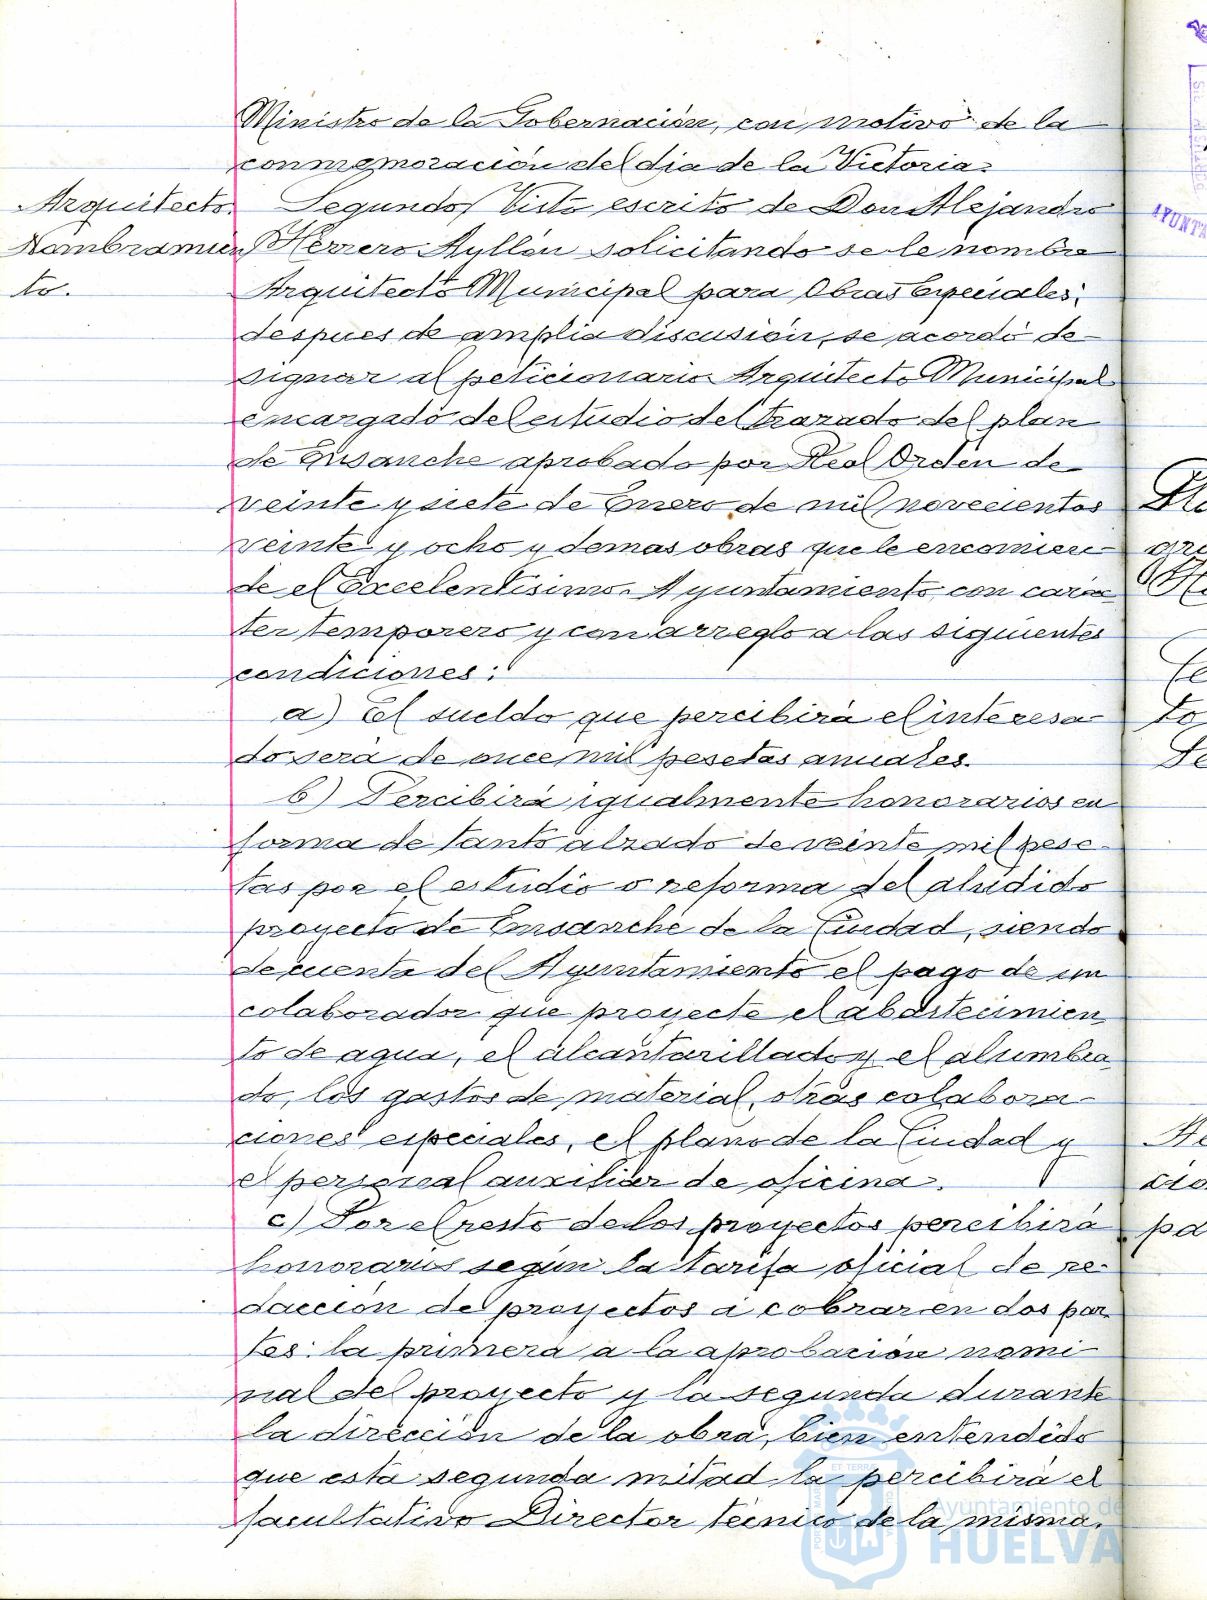 Ministro de la Gobernación, con motivo de la
conmemoración del dia de la Victoria.
Arquitecto.
Nombramien
to.
Segundo/ Visto escrito de Don Alejandro
Herrero Ayllón solicitando se le nombre
Arquitecto Municipal para Obras Especiales;
despues de amplia discusión, se acordó de-
signar al peticionario Arquitecto Municipal
encargado del estudio del trazado del plan
de Ensanche aprobado por Real Orden de
veinte y siete de Enero de mil novecientos
veinte y ocho y demas obras que le encomien-
de el Excelentísimo Ayuntamiento, con carác-
ter temporero y con arreglo a las siguientes
condiciones:
a) El sueldo que percibirá el interesa-
do será de once mil pesetas anuales.
b) Percibirá igualmente honorarios en
forma de tanto alzado de veinte mil pese-
tas por el estudio o reforma del aludido
proyecto de Ensanche de la Ciudad, siendo
de cuenta del Ayuntamiento el pago de un
colaborador que proyecte el abastecimien
to de agua, el alcantarillado y el alumbra
do, los gastos de material, otras colabora-
ciones especiales, el plano de la Ciudad y
el personal auxiliar de oficina.
c) Por el resto de los proyectos percibirá
honorarios según la tarifa oficial de re-
dacción de proyectos a cobrar en dos par
tes: la primera a la aprobación nomi-
nal del proyecto y la segunda durante
la dirección de la obra, bien entendido
que esta segunda mitad la percibirá el
facultativo Director técnico de la misma.
Ayuntamiento de
HUELVA